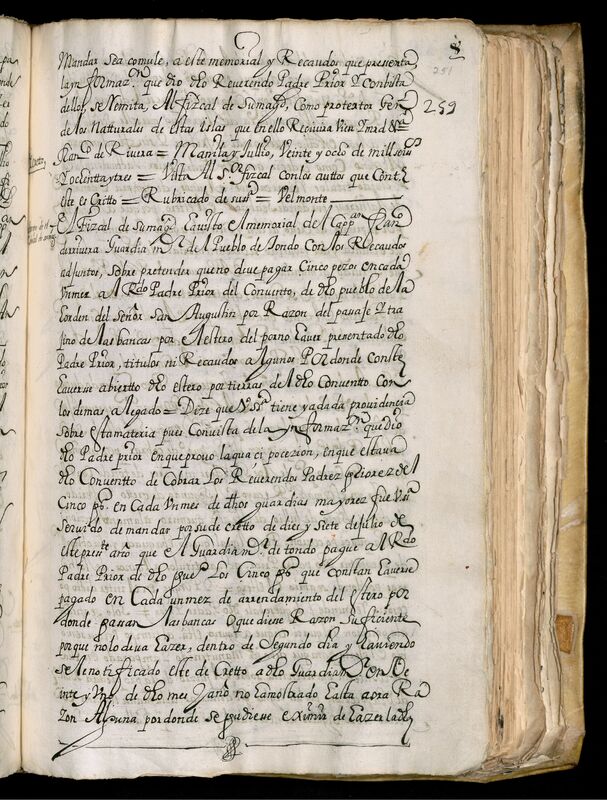 251
259
Mandar sea comule, a este memorial y Recaudos que presenta,
la ynformaz.on que dio dho Reverendo Padre Prior Y con bista
dellos, se Remita, Al fizcal de su mag.d, Como protector Gen.l
de los Natturales de estas Islas que en ello Recivira Vien Y mrd &.a
Fran.co de Rivera = Manila y Jullio, Veinte y ocho de mill seis.os
Y ochentta y tres = Vista Al S.or fizcal con los auttos que Cont.e
este escritto = Rubricado de su s.a = Velmonte
El fizcal de su mag.d Ea visto el memorial del Cap.an Fran.co
de rrivera Guardia m.r del Pueblo de Tondo Con los Recaudos
adjuntos, sobre pretender que no deve pagar Cinco pezos en cada
Un mez al R.do Padre Prior del Convento, de dho pueblo de la
Eorden del Señor San Augustin por Razon del pasaje Y tra
jino de las bancas por el estero del por no Eaver presentado dho
Padre Prior, titulos ni Recaudos algunos Por donde conste
Eaverse abiertto dho estero por tierras del dho Conventto Con
lo demas, alegado = Dize que V.S.a tiene ya dada providencia
sobre esta materia pues Con vista de la ynformaz.on que dio
dho Padre prior en que provo la quaci pocezion, en que estava
dho Conventto de Cobrar Los Reverendos Padrez priorez del
Cinco p.s en Cada Un mes de dhos guardias mayorez fue V.S.a
Servido de mandar por su decretto de diez y siete de Julio de
este press.te año que el Guardia m.r de tondo pague al R.do
Padre Prior de dho pue.o Los Cinco p.s que constan Eaverse
pagado en Cada un mez de arrendamiento del estero por
donde pasan las bancas O que diese Razon Suficiente
porque no lo deva Eazer, dentro de Segundo dia y Eaviendo
se le notificado este decretto a dho Guardia m.r en Ve
inte y Uno de dho mes, Y ano no Ea mostrado Easta aora Ra
zon Alguna, por donde se pudiese eximir de Eazer la dh.a